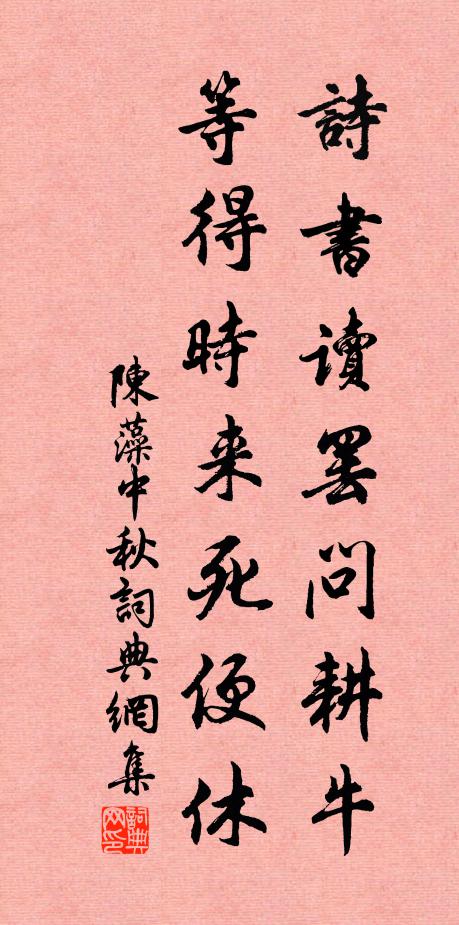 詩書讀罷問耕牛
等得時来死便休
陳藻中秋詞典網集
詞典
网印